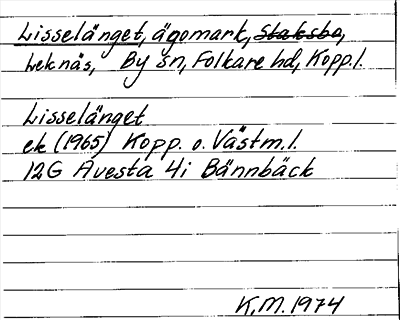 Lisselänget, ägomark, Staksbo,
Leknäs, By sn, Folkare hd, Kopp.l.
Lisselänget
ek (1965) Kopp. o. Västm.l.
12G Avesta 4i Bännbäck
K.M. 1974